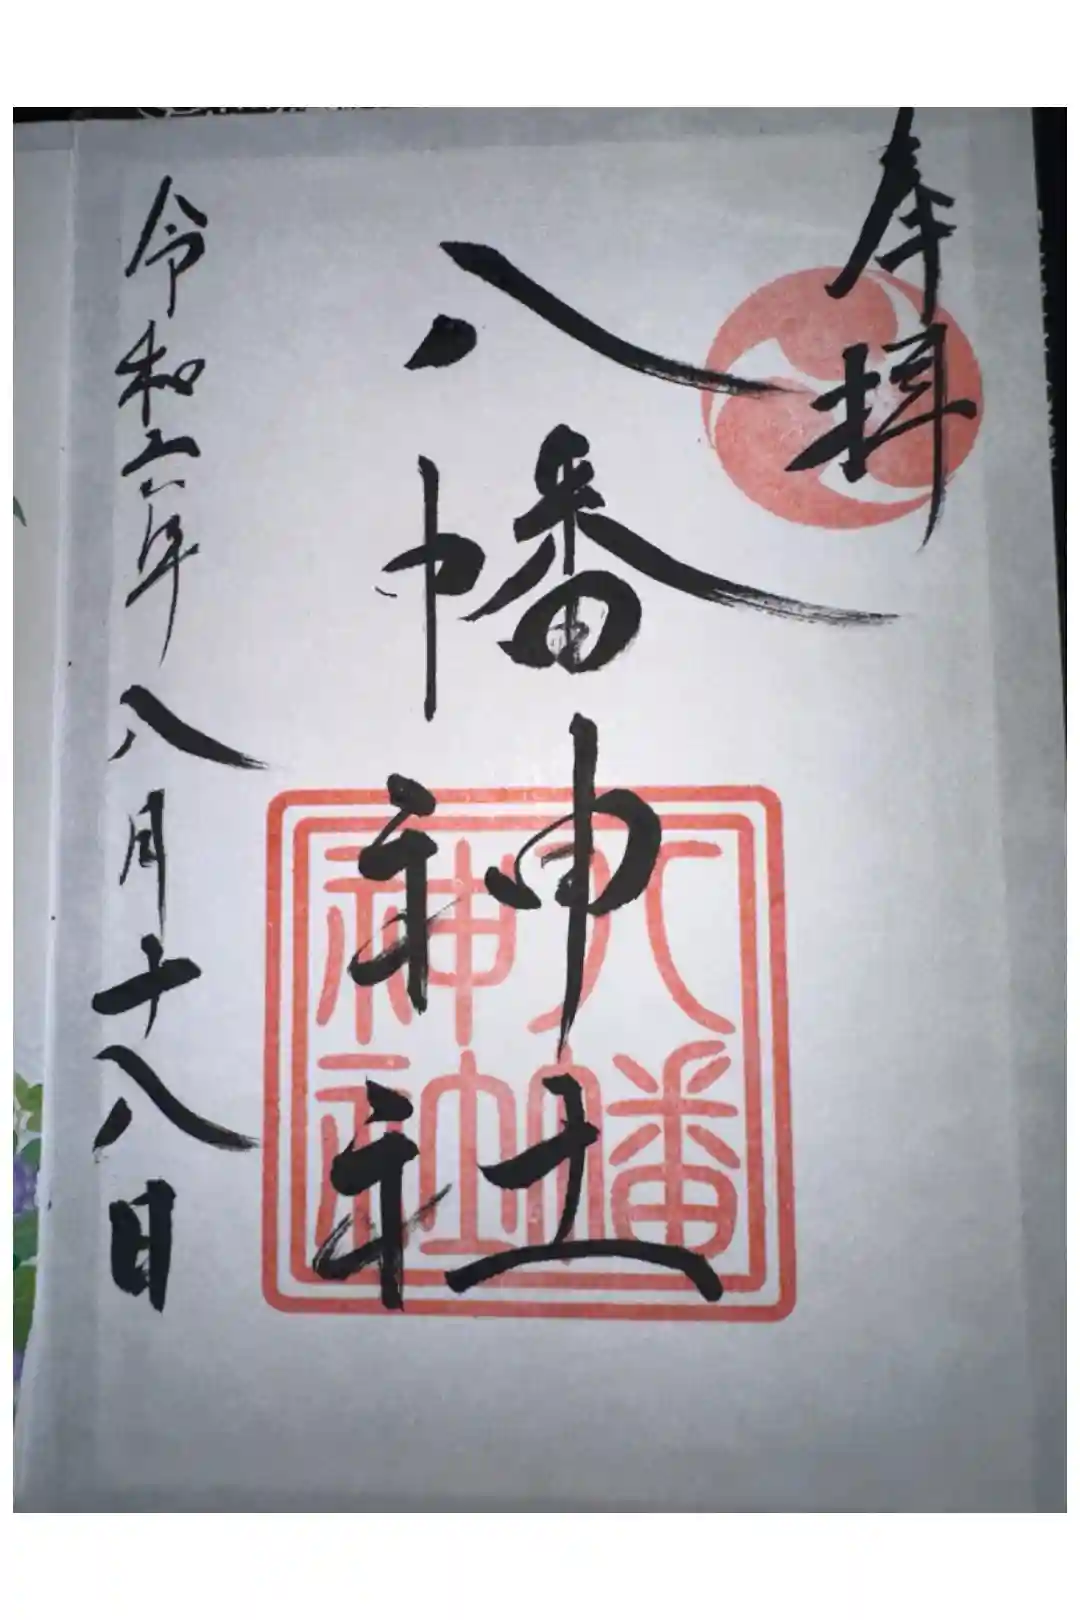 奉拝
八幡神社
八幡神社
令和六年八月十八日